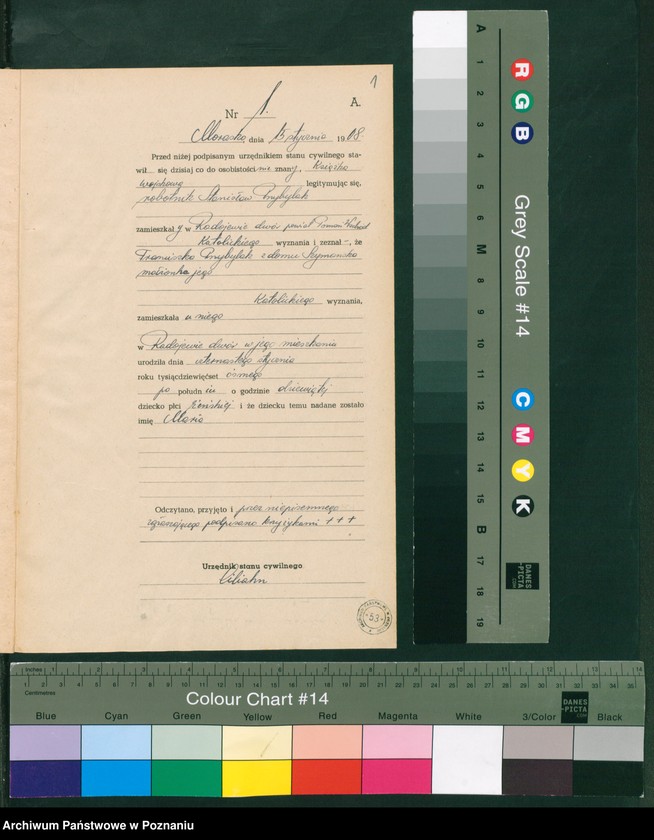 1
Nr 1.
A.
Morasko dnia 15 stycznia 1908
Przed niżej podpisanym urzędnikiem stanu cywilnego sta-
wił się dzisiaj co do osobistości znany, książką
wojskową legitymując się,
robotnik Stanisław Przybylak
zamieszkały w Radojewie dwór powiat Poznań Wschod
Katolickiego wyznania i zeznał -, że
Franciszka Przybylak z domu Szymańska
małżonka jego
Katolickiego wyznania,
zamieszkała u niego
w Radojewie dwór w jego mieszkaniu
urodziła dnia stycznia
roku tysiącdziewięćset ósmego
po połudn iu o godzinie dziewiątej
dziecko płci żeńskiej i że dziecku temu nadane zostało
imię Maria
Odczytano, przyjęto i przez niepiśmiennego
zgłaszającego podpisano krzyżykami + + +
Urzędnik stanu cywilnego
53
A 1 2 3 4 5 6 M 8 9 10 11 12 13 14 15 B 17 18 19
R G B
Grey Scale #14
C M Y K
DANES
-PICTA
.COM
Inches 1 2 3 4 5 6 7 8 9 10 11 12 13 14
1 2 3 4 5 6 7 8 9 10 11 12 13 14 15 16 17 18 19 20 21 22 23 24 25 26 27 28 29 30 31 32 33 34 35
Centimetres
Colour Chart #14
DANES
-PICTA
.COM
Blue Cyan Green Yellow Red Magenta White 3/Color Black
Archiwum Państwowe w Poznaniu